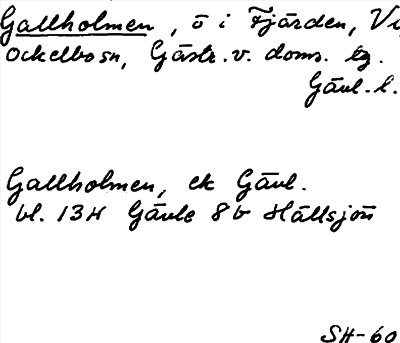 Gallholmen, ö i Fjärden, Vi
Ockelbo sn, Gästr. v. doms. tg.
Gävl. l.
Gallholmen, ek Gävl.
bl. 13H Gävle 8b Hällsjön
SH-60